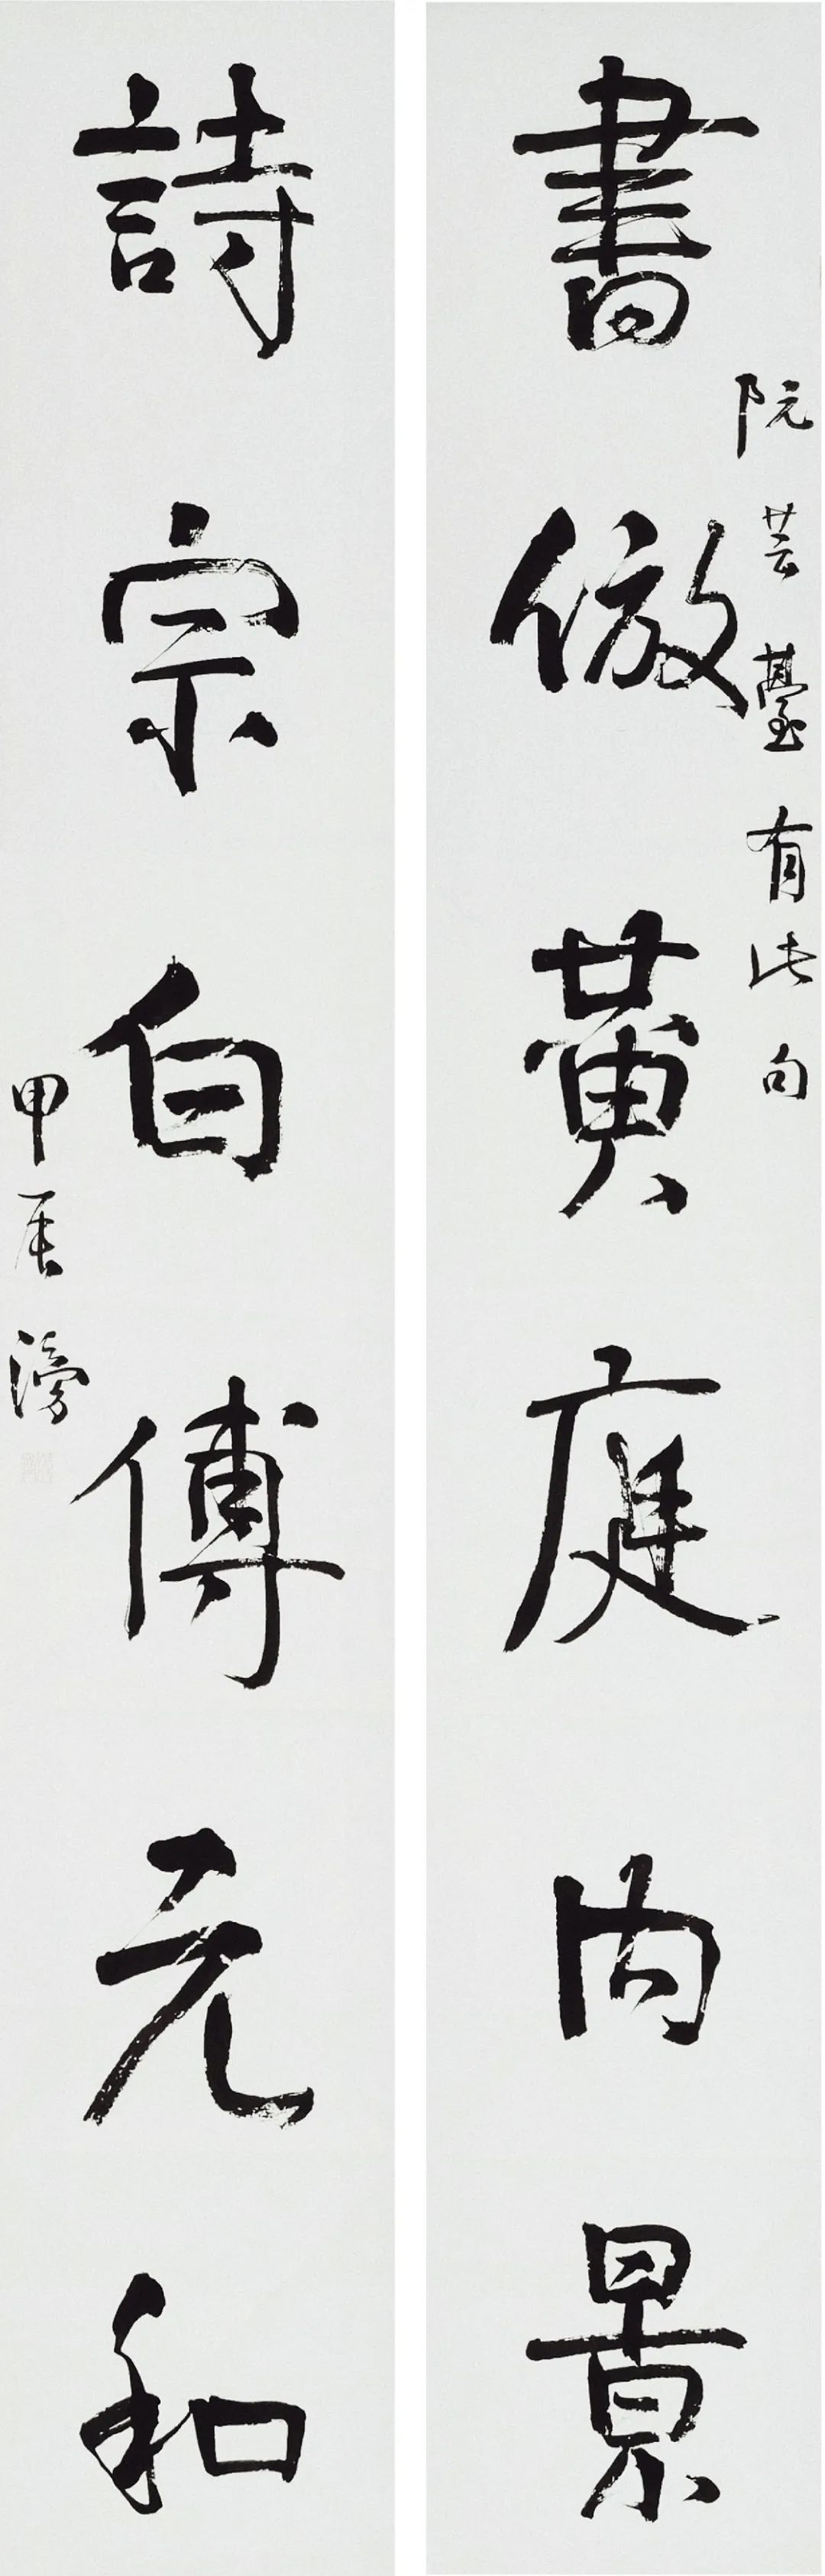 書倣黄庭内景
阮芸臺有此句
詩宗白傅元和
甲辰滂